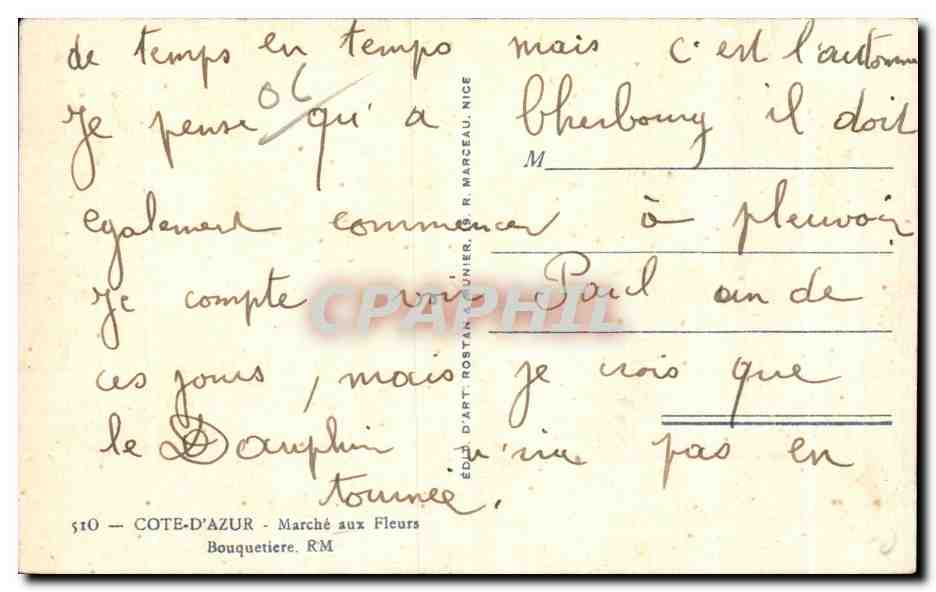 de temps en temps mais c'est l'automne
06
Je pense qu'a Cherbourg il doit
M
egalement commencer à pleuvoir
Je compte voir Paul un de
ces jours, mais je crois que
le Dauphin n'ira pas en
tournée.
510 — COTE-D'AZUR - Marché aux Fleurs
Bouquetiere. RM
EDIT. D'ART. ROSTAN & MUNIER, R. MARCEAU, NICE
CPAPHIL